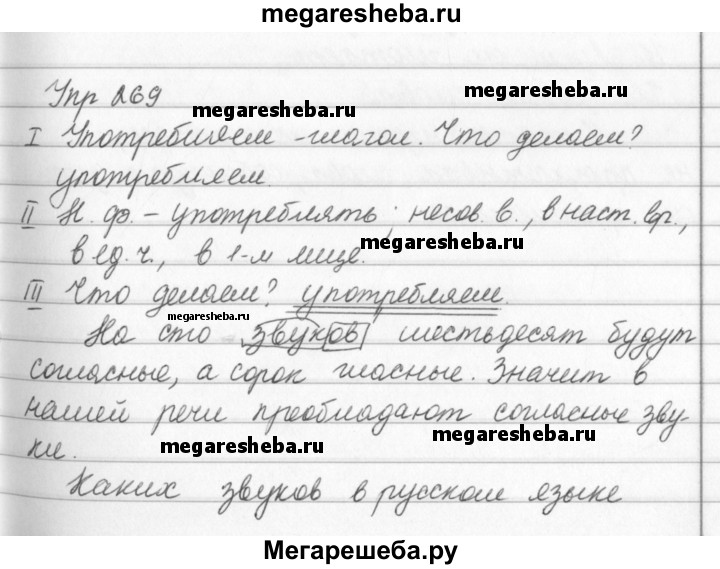 megaresheba.ru
Упр 269
megaresheba.ru
megaresheba.ru
I Употребляем - глагол. Что делаем?
употребляем.
II Н. ф. - употреблять; несов. в., в наст. вр.,
megaresheba.ru
в ед. ч., в 1-м лице.
III Что делаем? употребляем.
megaresheba.ru
На сто звуков шестьдесят будут
согласные, а сорок гласные. Значит в
нашей речи преобладают согласные зву-
ки.
megaresheba.ru
megaresheba.ru
Каких звуков в русском языке
Мегарешеба.ру